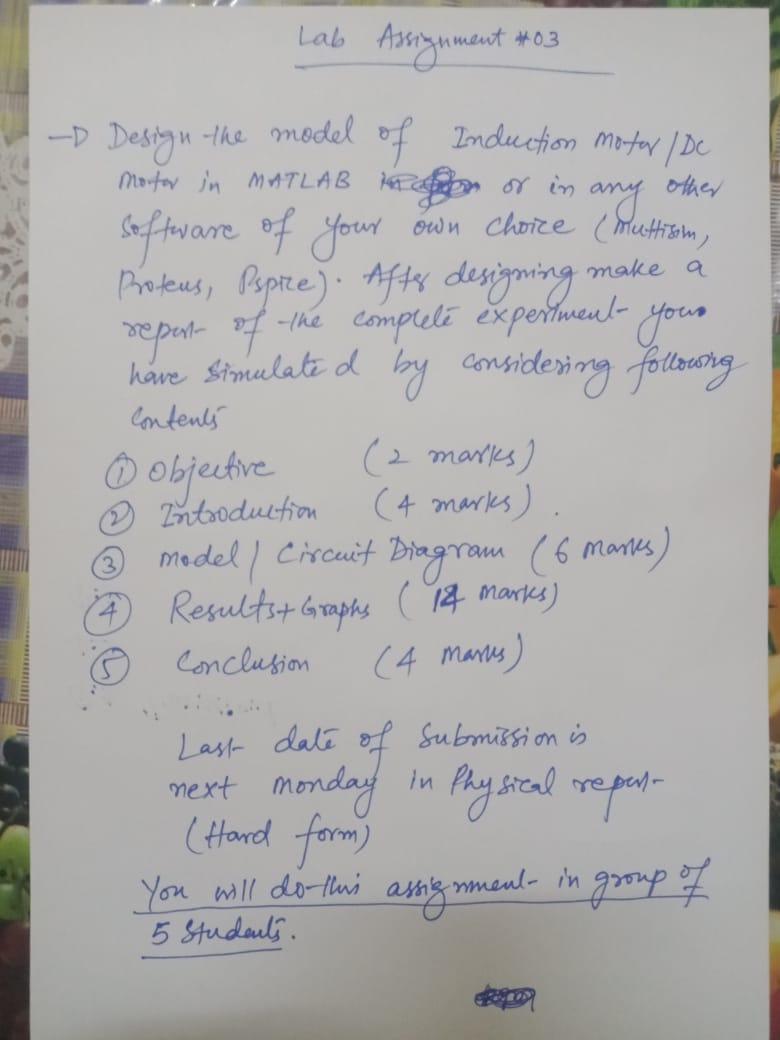 Lab Assignment #03
→ Design the model of Induction Motor / DC
Motor in MATLAB or in any other
Software of your own choice (Multisim,
Proteus, Pspice). After designing make a
report of the complete experiment you
have simulated by considering following
Contents
① Objective (2 marks)
② Introduction (4 marks).
③ Model / Circuit Diagram (6 marks)
④ Results + Graphs (14 marks)
⑤ Conclusion (4 marks)
Last date of Submission is
next Monday in Physical report
(Hard form)
You will do this assignment in group of
5 Students.